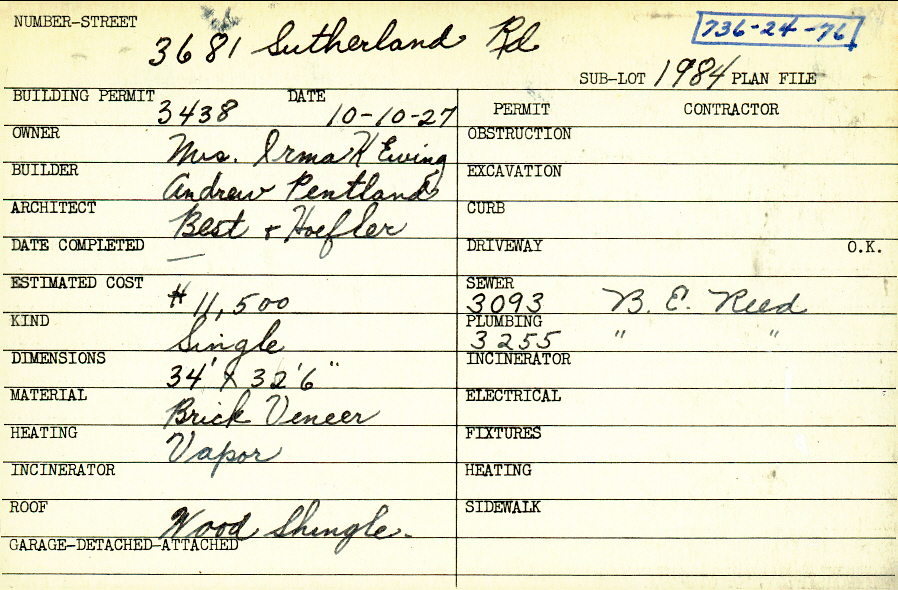 NUMBER-STREET 3681 Sutherland Rd 736-24-76
SUB-LOT 1984 PLAN FILE
BUILDING PERMIT 3438 DATE 10-10-27 PERMIT CONTRACTOR
OWNER Mrs. Irma K Ewing OBSTRUCTION
BUILDER Andrew Pentland EXCAVATION
ARCHITECT Best + Hoefler CURB
DATE COMPLETED — DRIVEWAY O.K.
ESTIMATED COST $11,500 SEWER 3093 B. E. Reed
KIND Single PLUMBING 3255 " "
DIMENSIONS 34' X 32'6" INCINERATOR
MATERIAL Brick Veneer ELECTRICAL
HEATING Vapor FIXTURES
INCINERATOR HEATING
ROOF Wood Shingle. SIDEWALK
GARAGE-DETACHED-ATTACHED